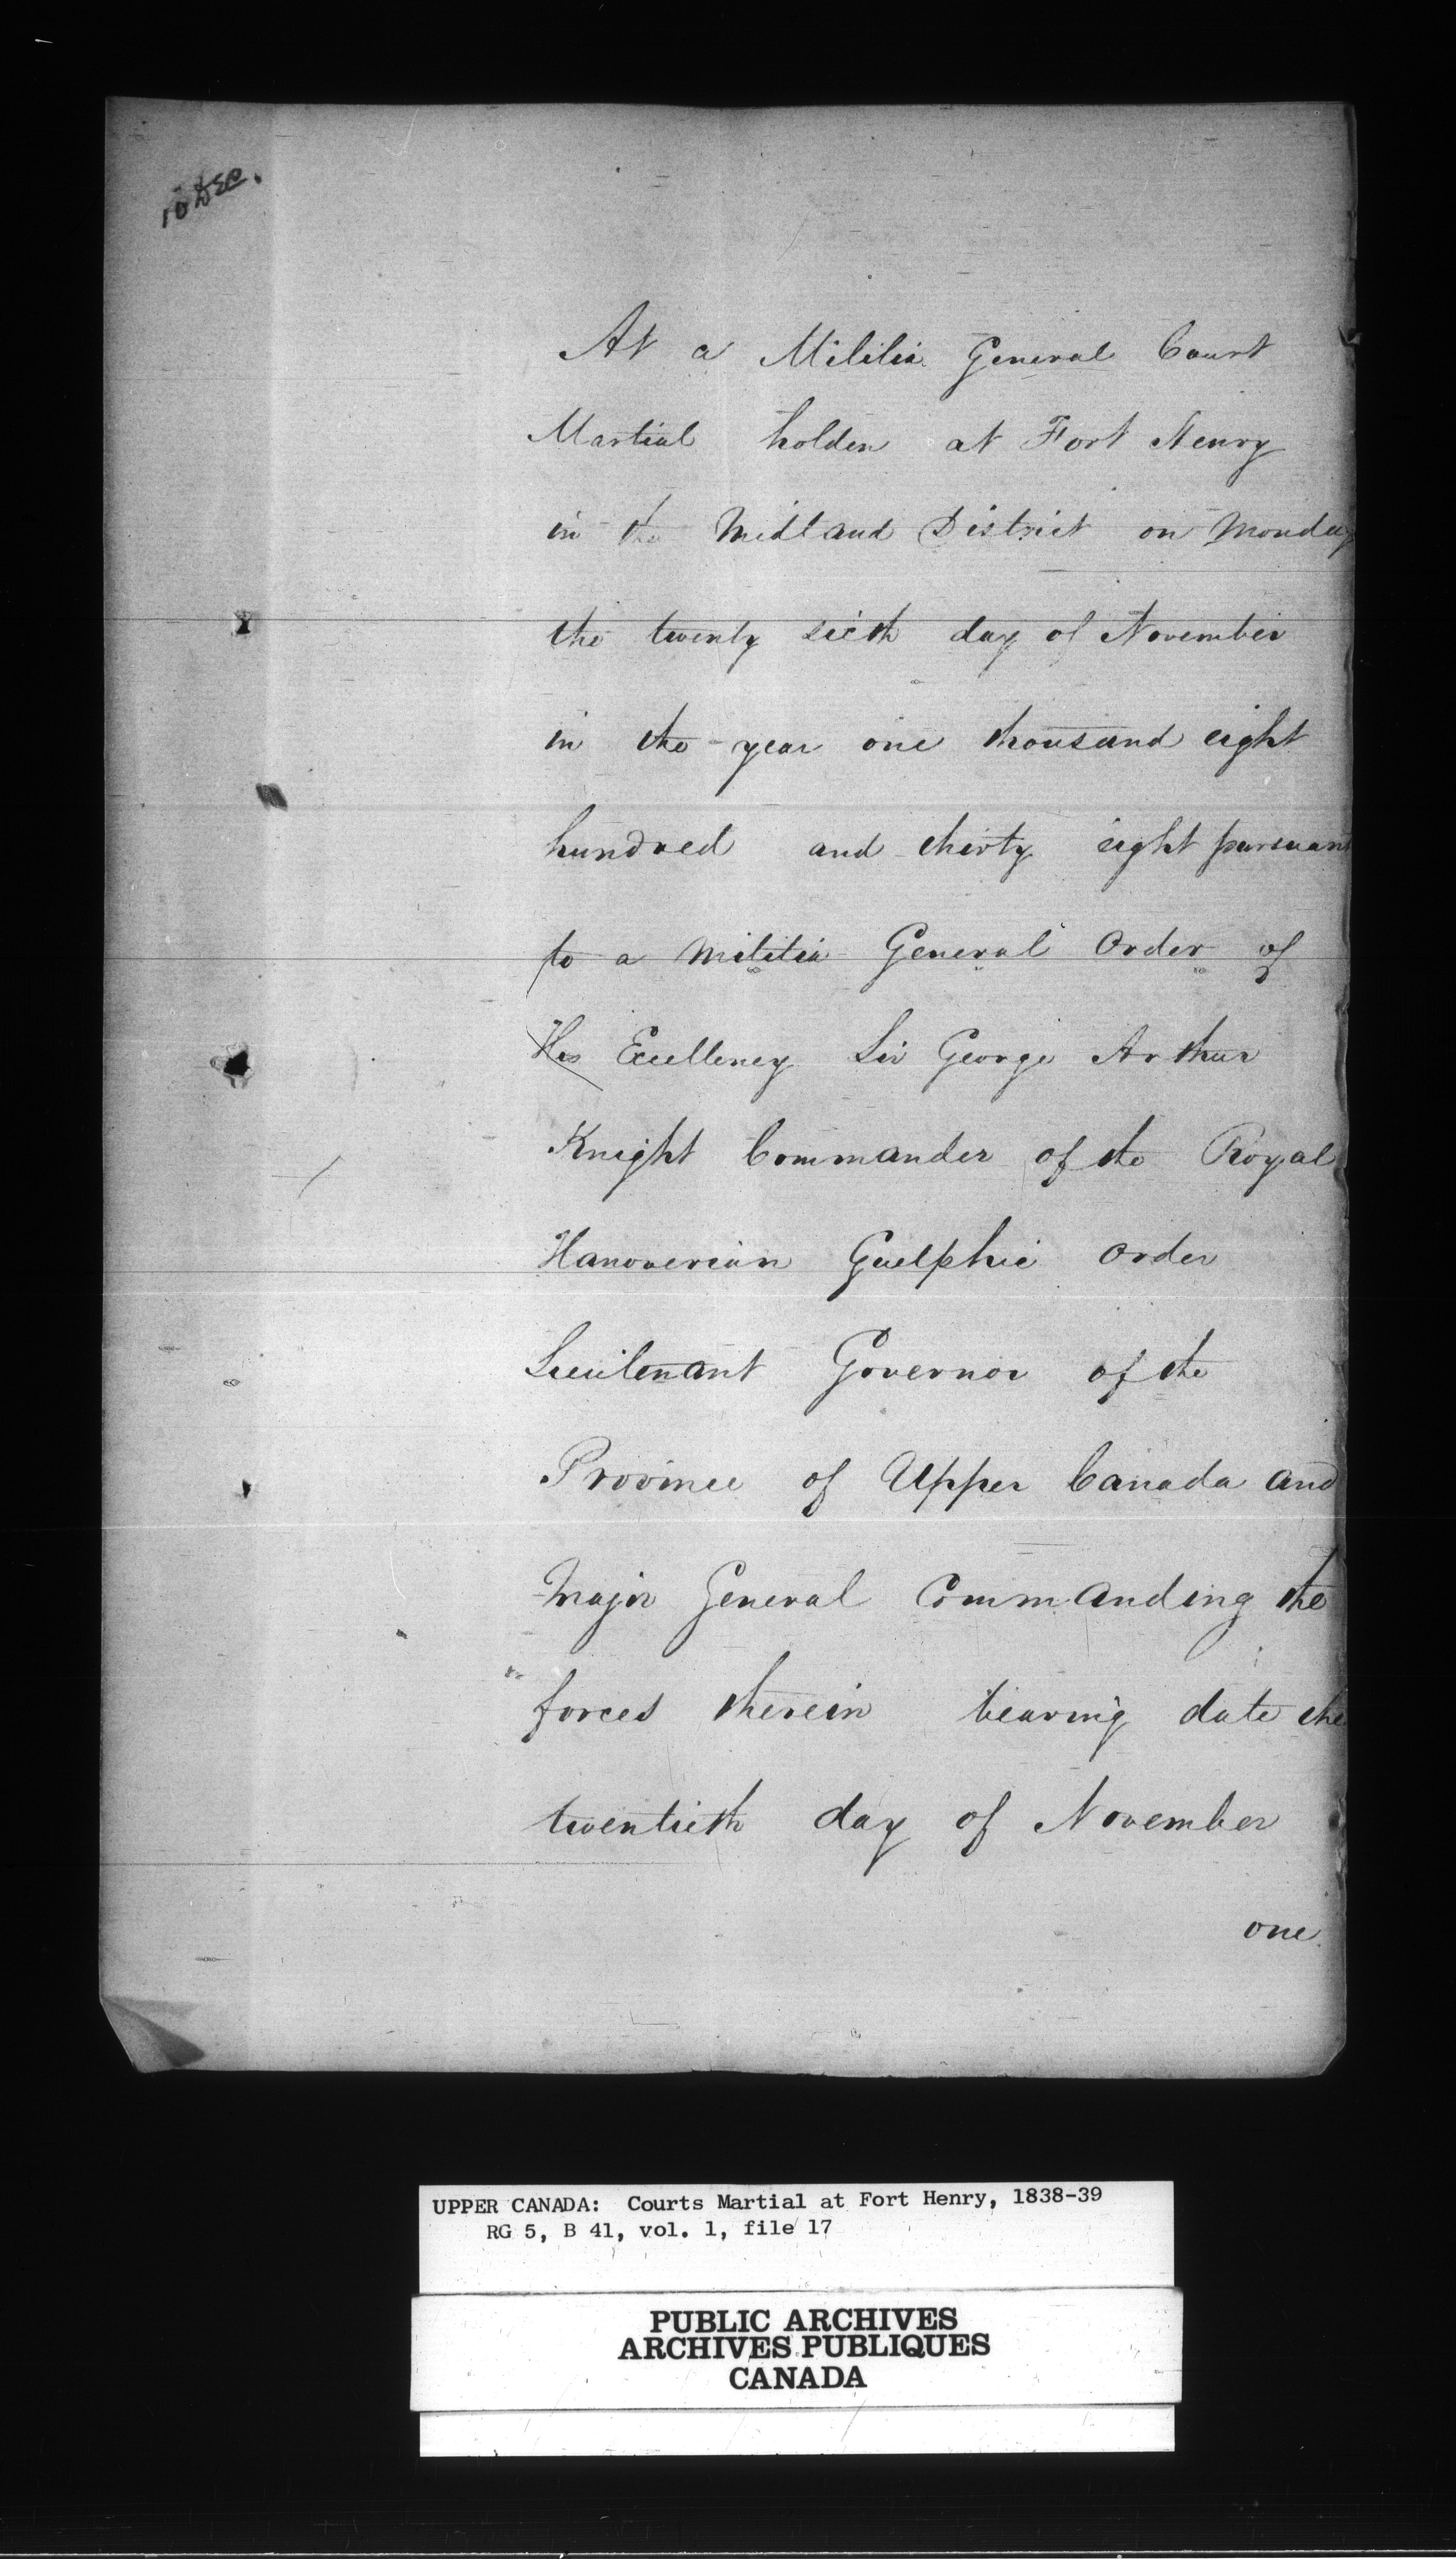 10 Dec.
At a Militia General Court
Martial holden at Fort Henry
in the Midland District on Monday
the twenty sixth day of November
in the year one thousand eight
hundred and thirty eight pursuant
to a Militia General Order of
His Excellency Sir George Arthur
Knight Commander of the Royal
Hanoverian Guelphic Order
Lieutenant Governor of the
Province of Upper Canada and
Major General Commanding the
forces therein bearing date the
twentieth day of November
one
UPPER CANADA: Courts Martial at Fort Henry, 1838-39
RG 5, B 41, vol. 1, file 17
PUBLIC ARCHIVES
ARCHIVES PUBLIQUES
CANADA